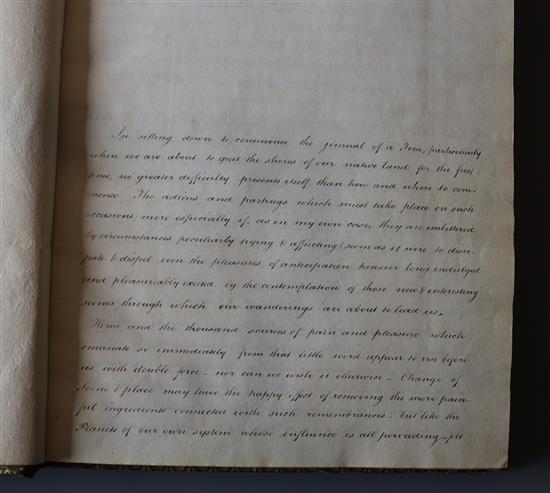 In sitting down to commence the journal of a Tour, particularly
when we are about to quit the shores of our native land for the first
time, no greater difficulty presents itself than how and where to com-
mence. The adieus and partings which must take place on such
occasions, more especially if, as in my own case, they are embittered
by circumstances peculiarly trying & affecting, seem as it were to dam-
pate & dispel even the pleasures of anticipation however long indulged
and pleasurably excited by the contemplation of those new & interesting
scenes through which our wanderings are about to lead us.
Home and the thousand sources of pain and pleasure which
emanate so immediately from that little word appear to rise before
us with double force - nor can we wish it otherwise - Change of
Scene & place may have the happy effect of removing the more pain-
ful ingredients connected with such remembrances - but like the
Planets of our own system whose influence is all pervading - felt